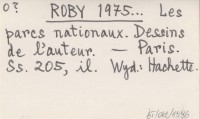 O? ROBY 1975... Les
parcs nationaux. Dessins
de l'auteur. — Paris.
Ss. 205, il. Wyd. Hachette.